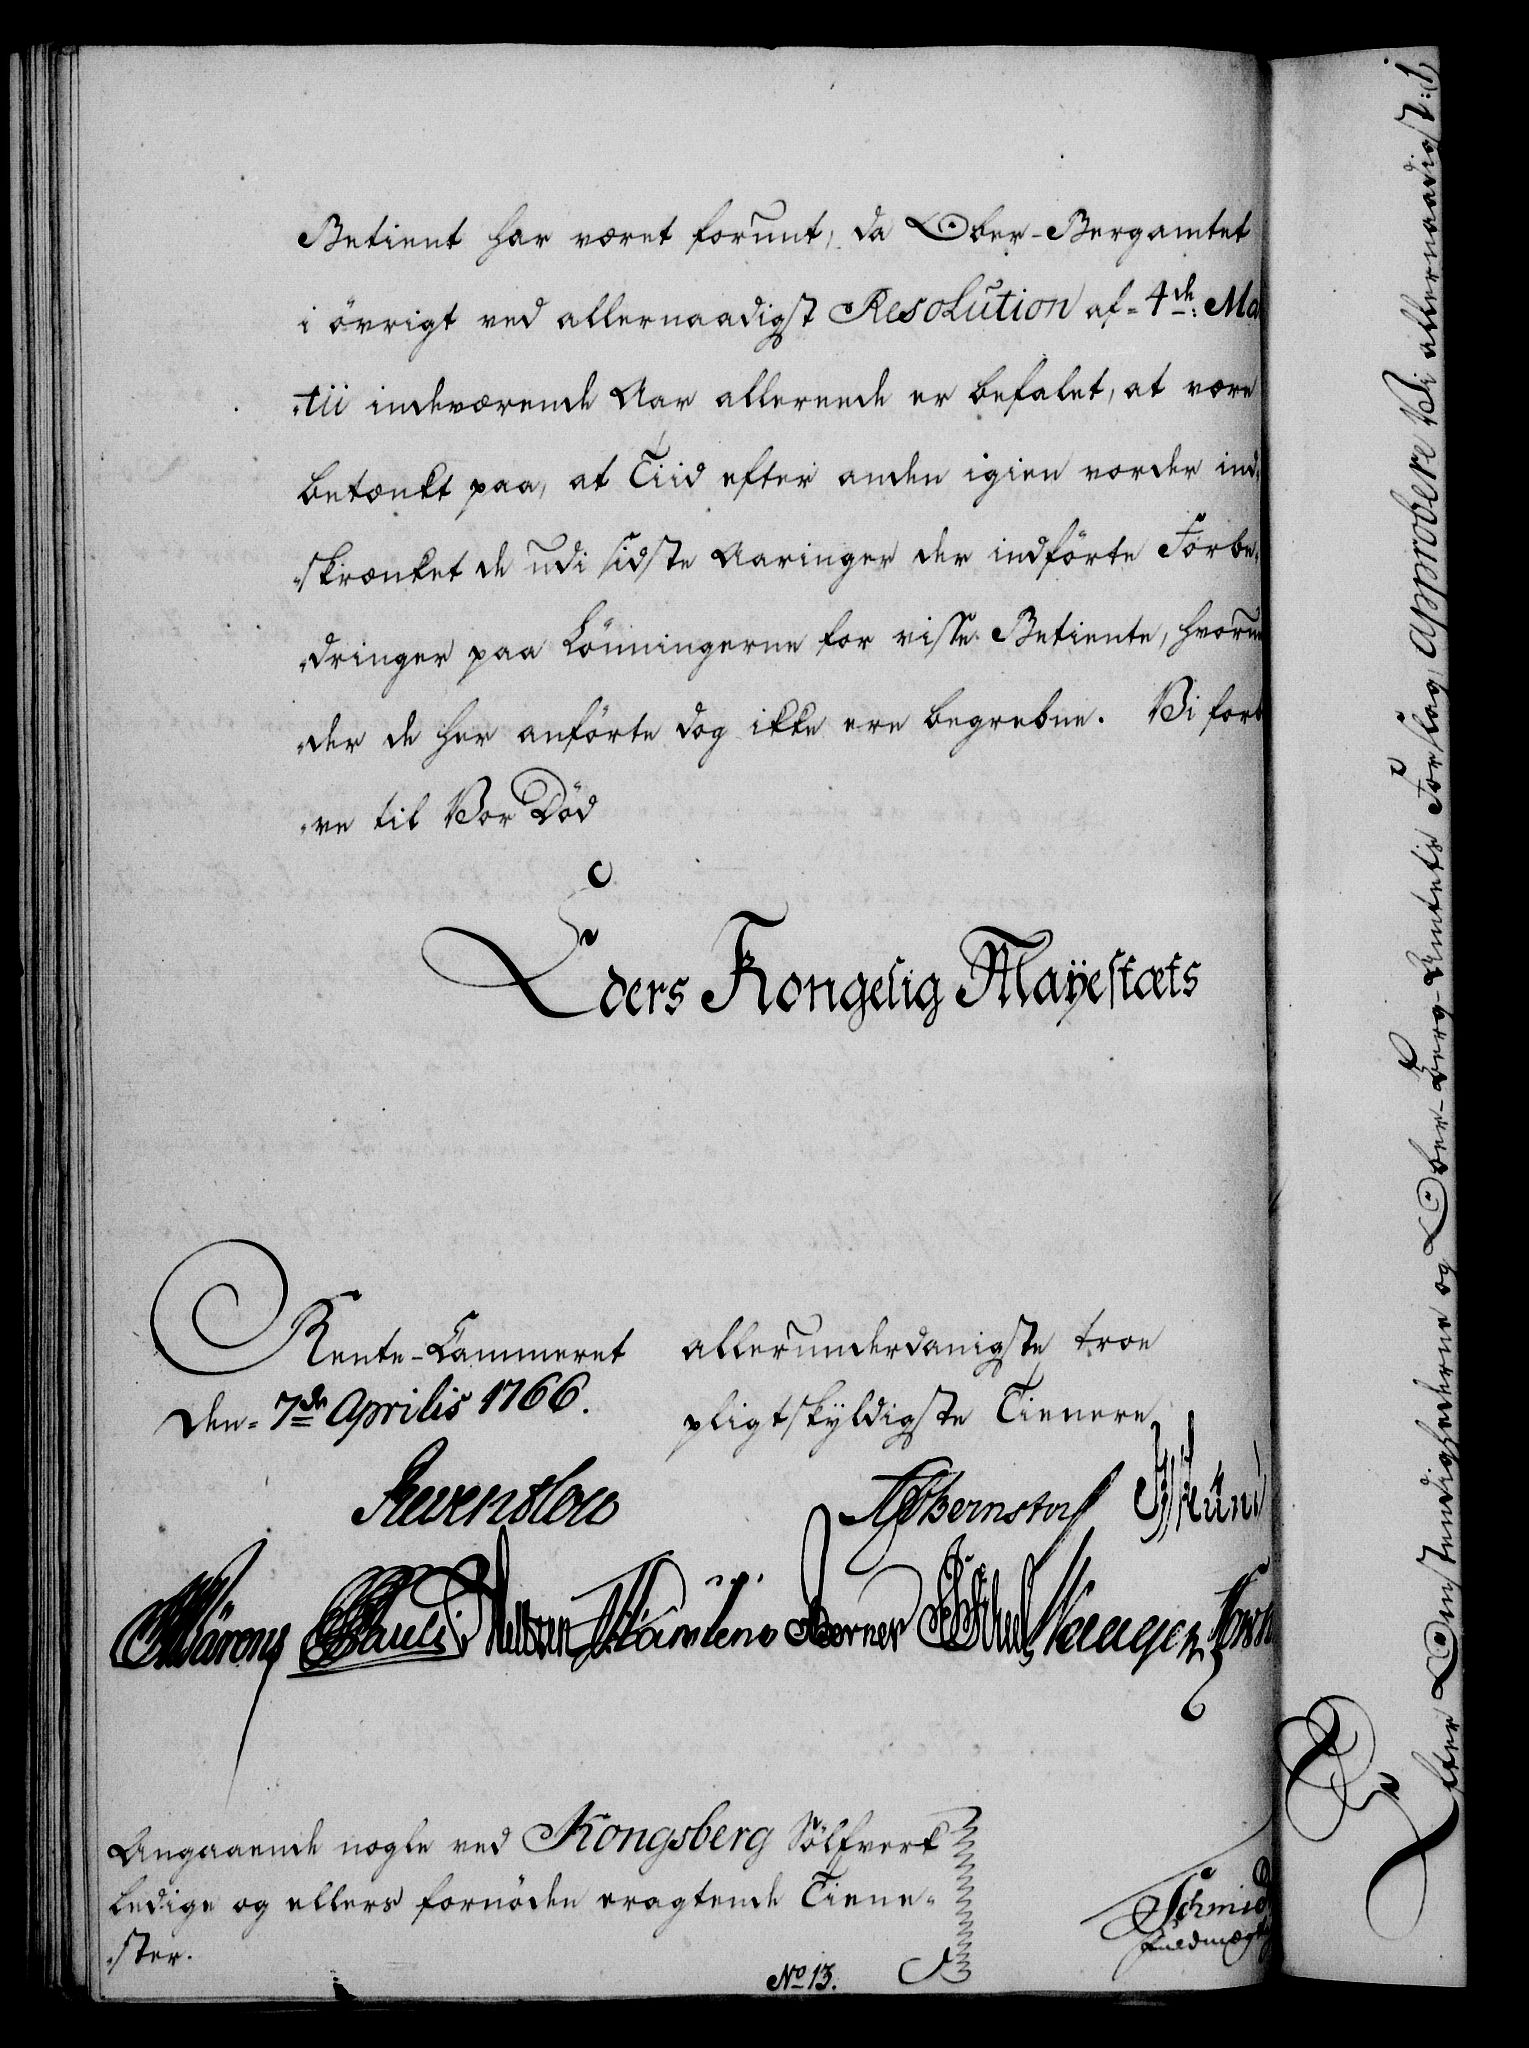 Betient har været forunt, da Ober-Bergamtet
i övrigt ved allernaadigst Resolution af 4de: Ma
-tii indeværende Aar allerede er befalet, at være
betænkt paa, at Tiid efter anden igien vorder ind-
-skrænket de udi sidste Aaringer der indförte Forbe-
-dringer paa Lönningerne for visse Betiente, hvorun
-der de her anförte dog ikke ere begrebne. Vi forb
-ve til Vor Död
Eders Kongelig Mayestæts
Rente-Cammeret allerunderdanigste troe
den 7de Aprilis 1766. pligtskyldigste Tienere
Reventlow Bernstorf
Pauli Nielsen Berner
Angaaende nogle ved Kongsberg Sölfverk
ledige og ellers fornöden eragtende Tiene-
-ster.
No 13.
Schmidt
Fuldmægtig
Efter Omstændighederne og Ober-Berg-Amtets Forslag, approbere Vi allernaadigst: